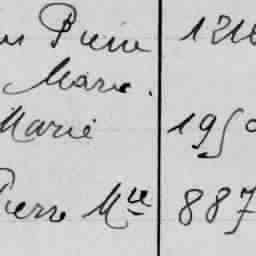 Pierre 121
Marie.
Marie 1950
Pierre Mce 887